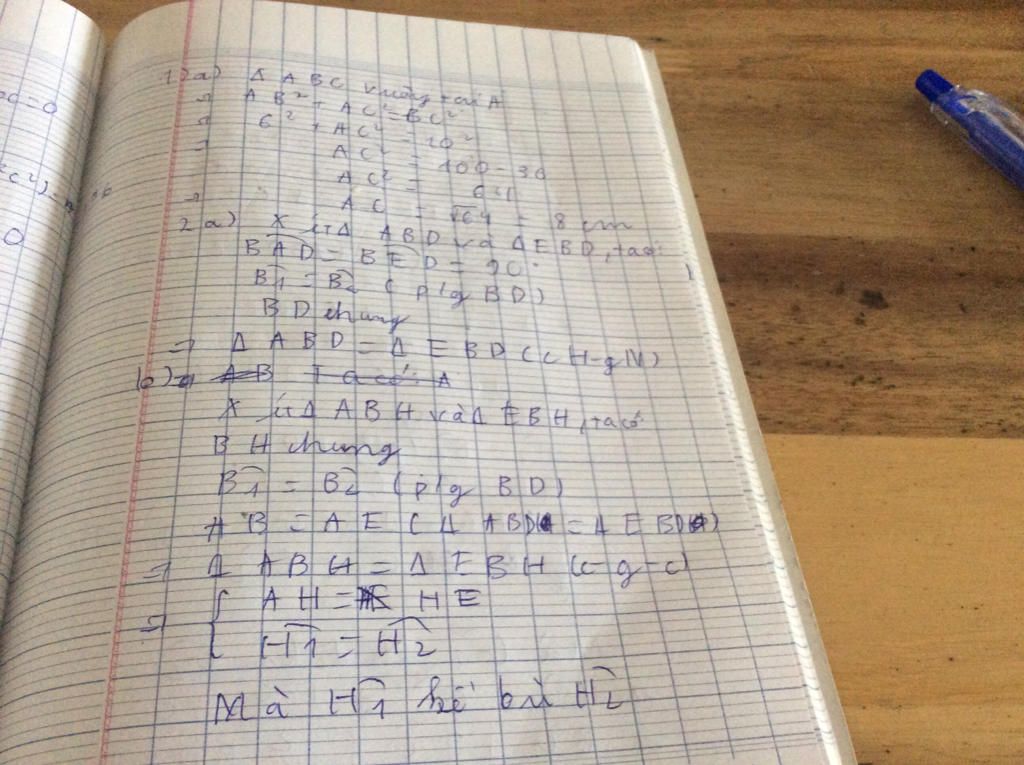 1) a) Δ ABC vuông tại A
⇒ AB² + AC² = BC²
⇒ 6² + AC² = 10²
⇒ AC² = 100 - 36
AC² = 64
⇒ AC = √64 = 8 cm
2 a) Xét Δ ABD và Δ EBD, ta có:
BAD = BED = 90°
B1 = B2 (p/g BD)
BD chung
⇒ Δ ABD = Δ EBD (cH-gN)
b) AB Ta có: A
Xét Δ ABH và Δ EBH, ta có
BH chung
B1 = B2 (p/g BD)
AB = AE (Δ ABD = Δ EBD)
⇒ Δ ABH = Δ EBH (c-g-c)
⇒ { AH = HE
H1 = H2
Mà H1 kề bù H2
oc = 0
0